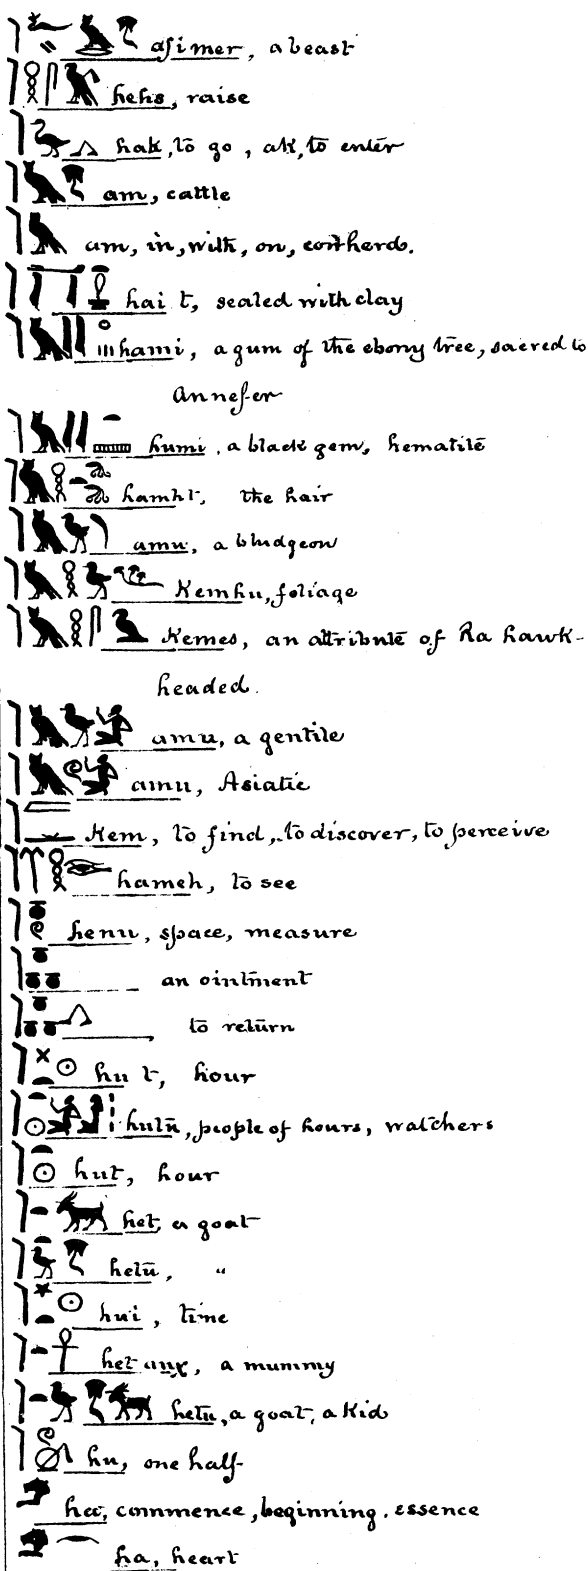 afimer, a beast
hehs, raise
hak, to go, ak, to enter
am, cattle
am, in, with, on, cowherd.
hai t, sealed with clay
hami, a gum of the ebony tree, sacred to
Annefer
humi, a black gem, hematite
hamht, the hair
amu, a bludgeon
Kemhu, foliage
Kemes, an attribute of Ra hawk-
headed.
amu, a gentile
amu, Asiatic
Kem, to find, to discover, to perceive
hameh, to see
henu, space, measure
an ointment
to return
hu t, hour
hutu, people of hours, watchers
hut, hour
het, a goat
hetu, "
hui, time
het anx, a mummy
hetu, a goat, a kid
hu, one half
ha, commence, beginning. essence
ha, heart